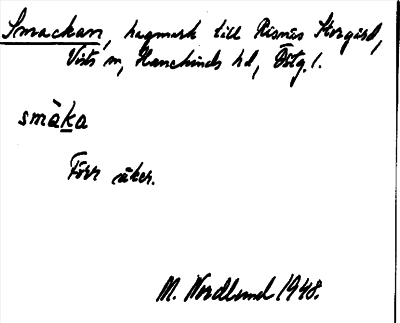 Smackan, hagmark till Risnäs Storgård,
Vists sn, Hanekinds hd, Östg. l.
småka
Förr åker.
M. Nordlund 1948.